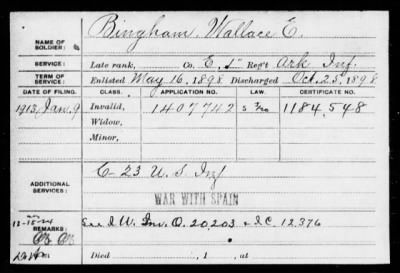 NAME OF SOLDIER: Bingham, Wallace E.
SERVICE: Late rank, Co. E, 1" Reg't Ark Inf.
TERM OF SERVICE: Enlisted May 16, 1898 Discharged Oct. 25, 1898
DATE OF FILING. CLASS. APPLICATION NO. LAW. CERTIFICATE NO.
1913, Jan. 9 Invalid, 1407742 S 1184,548
Widow,
Minor,
C- 23 U.S. Inf
ADDITIONAL SERVICES: WAR WITH SPAIN
12-15-24
REMARKS: See I W. Inv. O. 20,203 & I.C. 12,376
Died , 1 , at